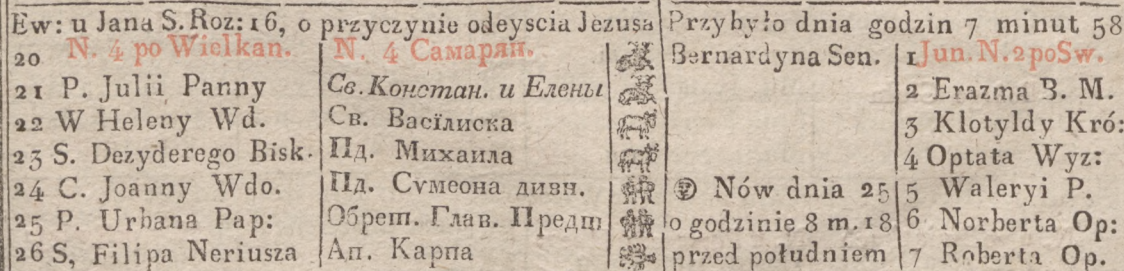 Ew: u Jana S. Roz: 16, o przyczynie odeyscia Jezusa Przybyło dnia godzin 7 minut 58
20 N. 4 po Wielkan. N. 4 Самарян. Bernardyna Sen. 1 Jun. N. 2 po Sw.
21 P. Julii Panny Св. Констан. и Елены 2 Erazma B. M.
22 W Heleny Wd. Св. Васїлиска 3 Klotyldy Kró:
23 S. Dezyderego Bisk. Пд. Михаила 4 Optata Wyz:
24 C. Joanny Wdo. Пд. Сѵмеона дивн. Nów dnia 25 5 Waleryi P.
25 P. Urbana Pap: Обрет. Глав. Предт o godzinie 8 m. 18 6 Norberta Op:
26 S, Filipa Neriusza Ап. Карпа przed południem 7 Roberta Op.